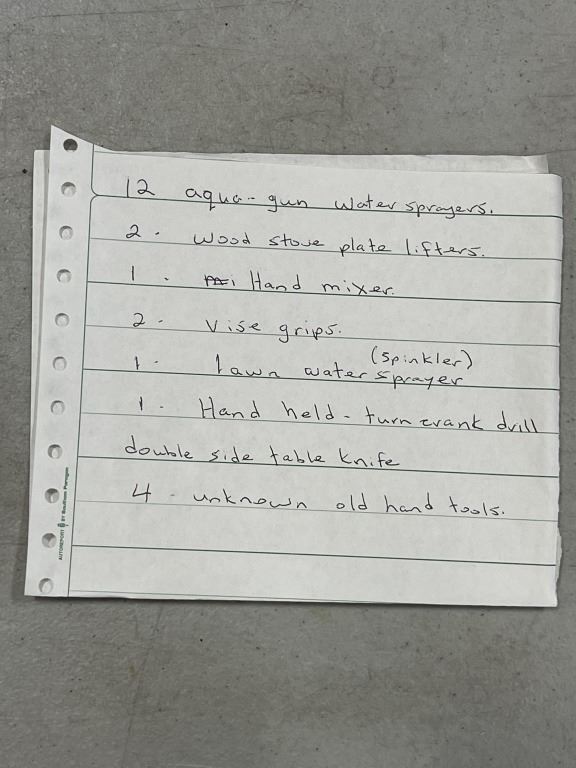 12 aqua-gun water sprayers.
2. wood stove plate lifters.
1. Hand mixer.
2. Vise grips.
(Spinkler)
1. lawn water sprayer
1. Hand held-turn crank drill
double side table knife
4 - unknown old hand tools.
AUTOREPORT BY